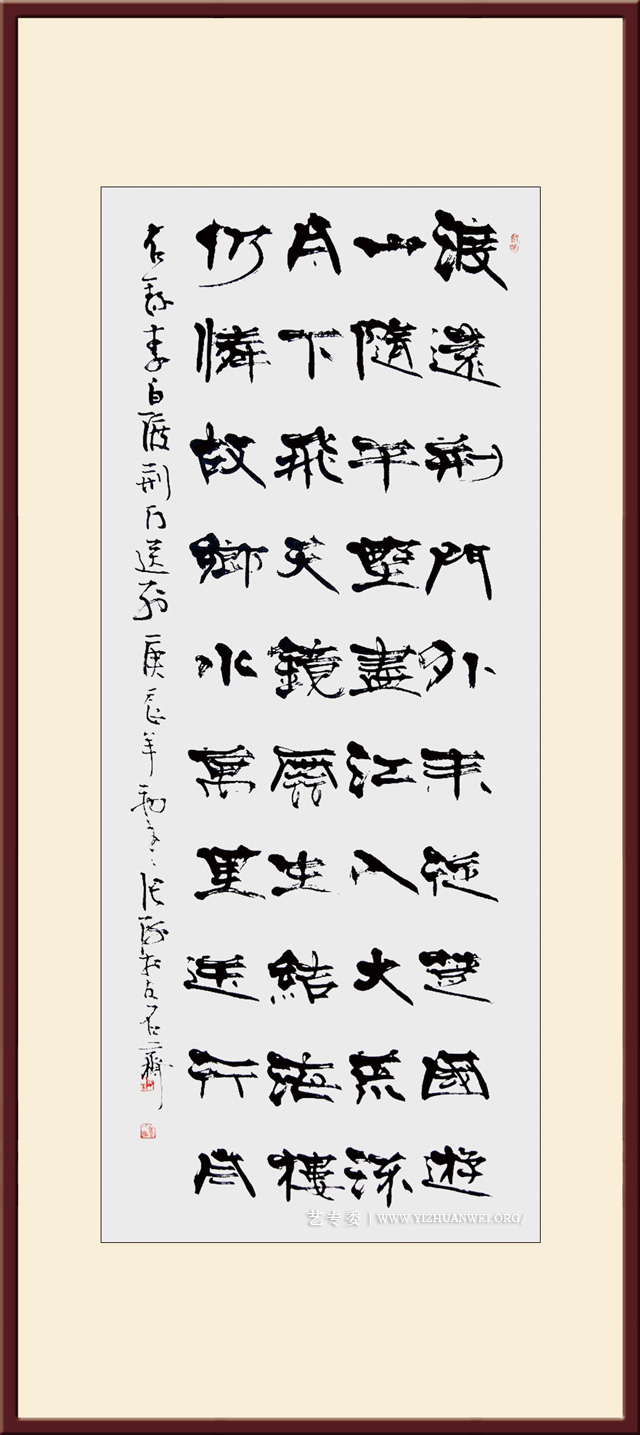 渡遠荊門外來從楚國遊
山隨平墅盡江入大荒流
月下飛天鏡雲生結海樓
仍憐故鄉水萬里送行舟
右錄李白渡荊門送別 庚辰年 石齋
艺专委 | WWW.YIZHUANWEI.ORG/